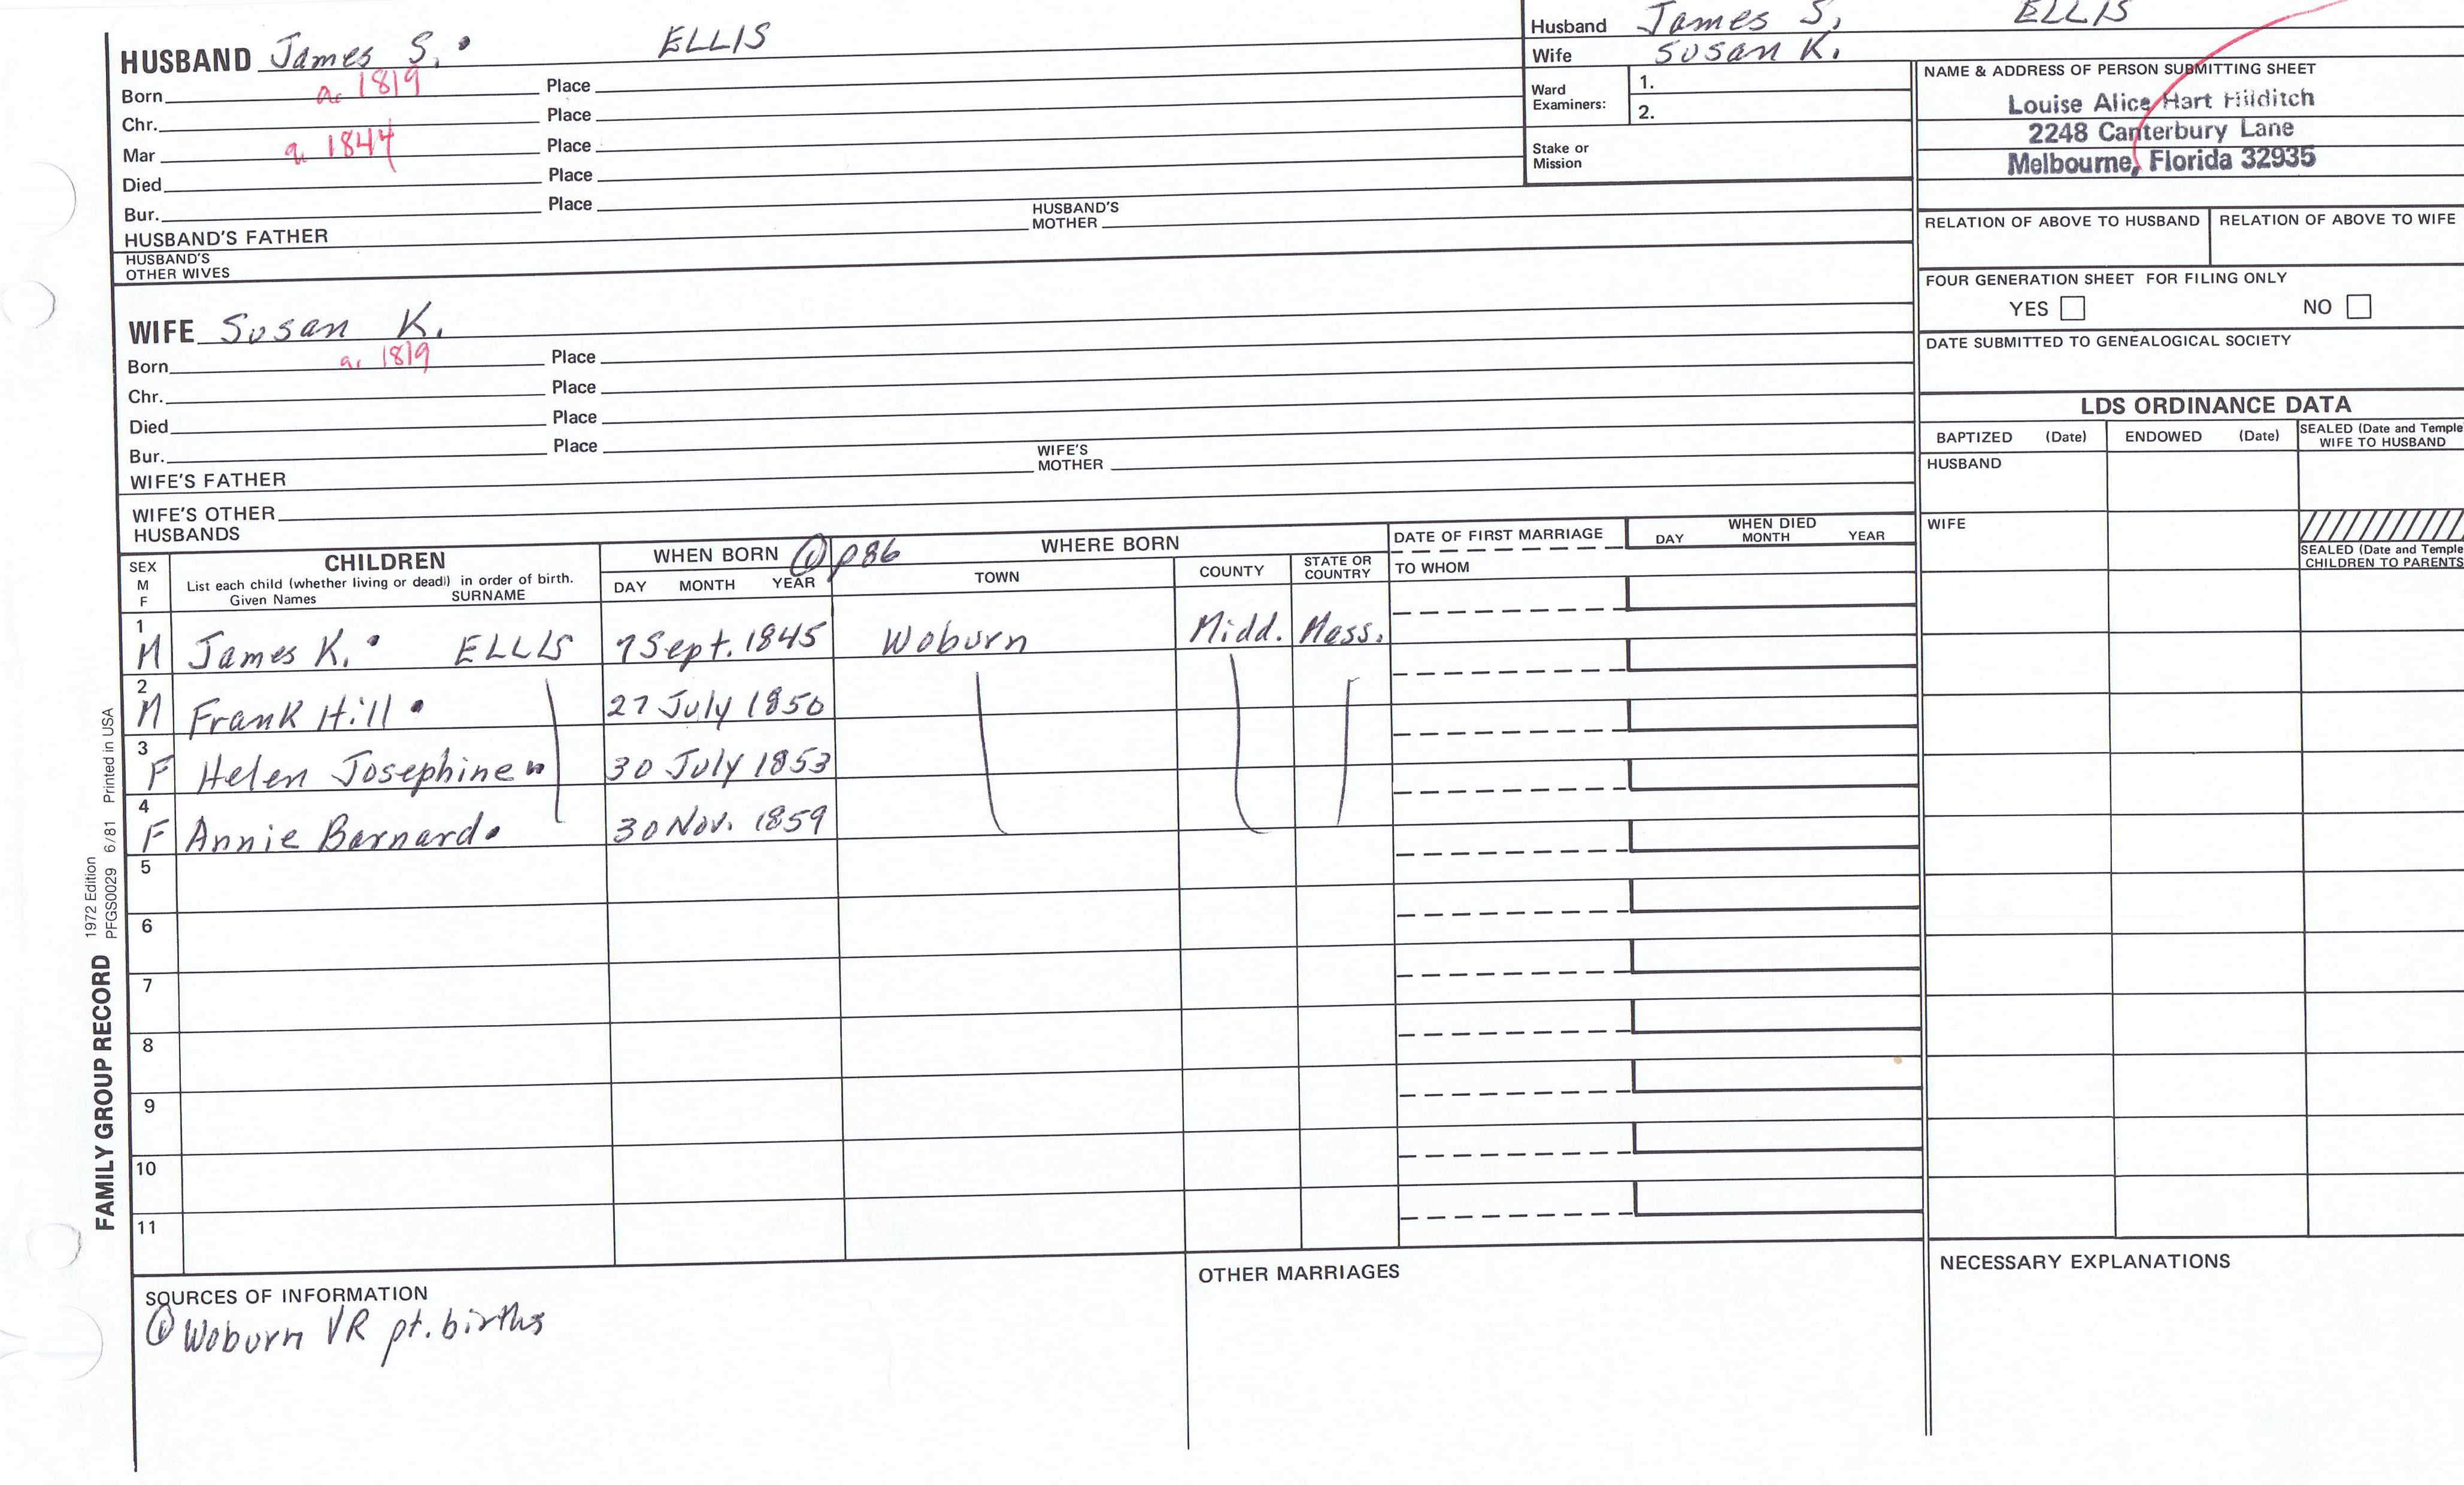 HUSBAND James S. ELLIS
Born a. 1819 Place
Chr. Place
Mar a. 1844 Place
Died Place
Bur. Place
HUSBAND'S FATHER HUSBAND'S MOTHER
HUSBAND'S OTHER WIVES
WIFE Susan K.
Born a. 1819 Place
Chr. Place
Died Place
Bur. Place
WIFE'S FATHER WIFE'S MOTHER
WIFE'S OTHER HUSBANDS
Husband James S. ELLIS
Wife Susan K.
Ward Examiners: 1.
2.
Stake or Mission
NAME & ADDRESS OF PERSON SUBMITTING SHEET
Louise Alice Hart Hilditch
2248 Canterbury Lane
Melbourne, Florida 32935
RELATION OF ABOVE TO HUSBAND RELATION OF ABOVE TO WIFE
FOUR GENERATION SHEET FOR FILING ONLY
YES NO
DATE SUBMITTED TO GENEALOGICAL SOCIETY
LDS ORDINANCE DATA
BAPTIZED (Date) ENDOWED (Date) SEALED (Date and Temple WIFE TO HUSBAND
HUSBAND
WIFE
SEALED (Date and Temple CHILDREN TO PARENTS
SEX M F
CHILDREN
List each child (whether living or dead) in order of birth.
Given Names SURNAME
WHEN BORN ① p86
DAY MONTH YEAR
WHERE BORN
TOWN COUNTY STATE OR COUNTRY
DATE OF FIRST MARRIAGE
TO WHOM
WHEN DIED
DAY MONTH YEAR
1 M James K. ELLIS 7 Sept. 1845 Woburn Midd. Mass.
2 M Frank Hill 27 July 1850
3 F Helen Josephine 30 July 1853
4 F Annie Barnard 30 Nov. 1859
5
6
7
8
9
10
11
SOURCES OF INFORMATION
① Woburn VR pt. births
OTHER MARRIAGES
NECESSARY EXPLANATIONS
FAMILY GROUP RECORD
1972 Edition
PFGS0029 6/81 Printed in USA